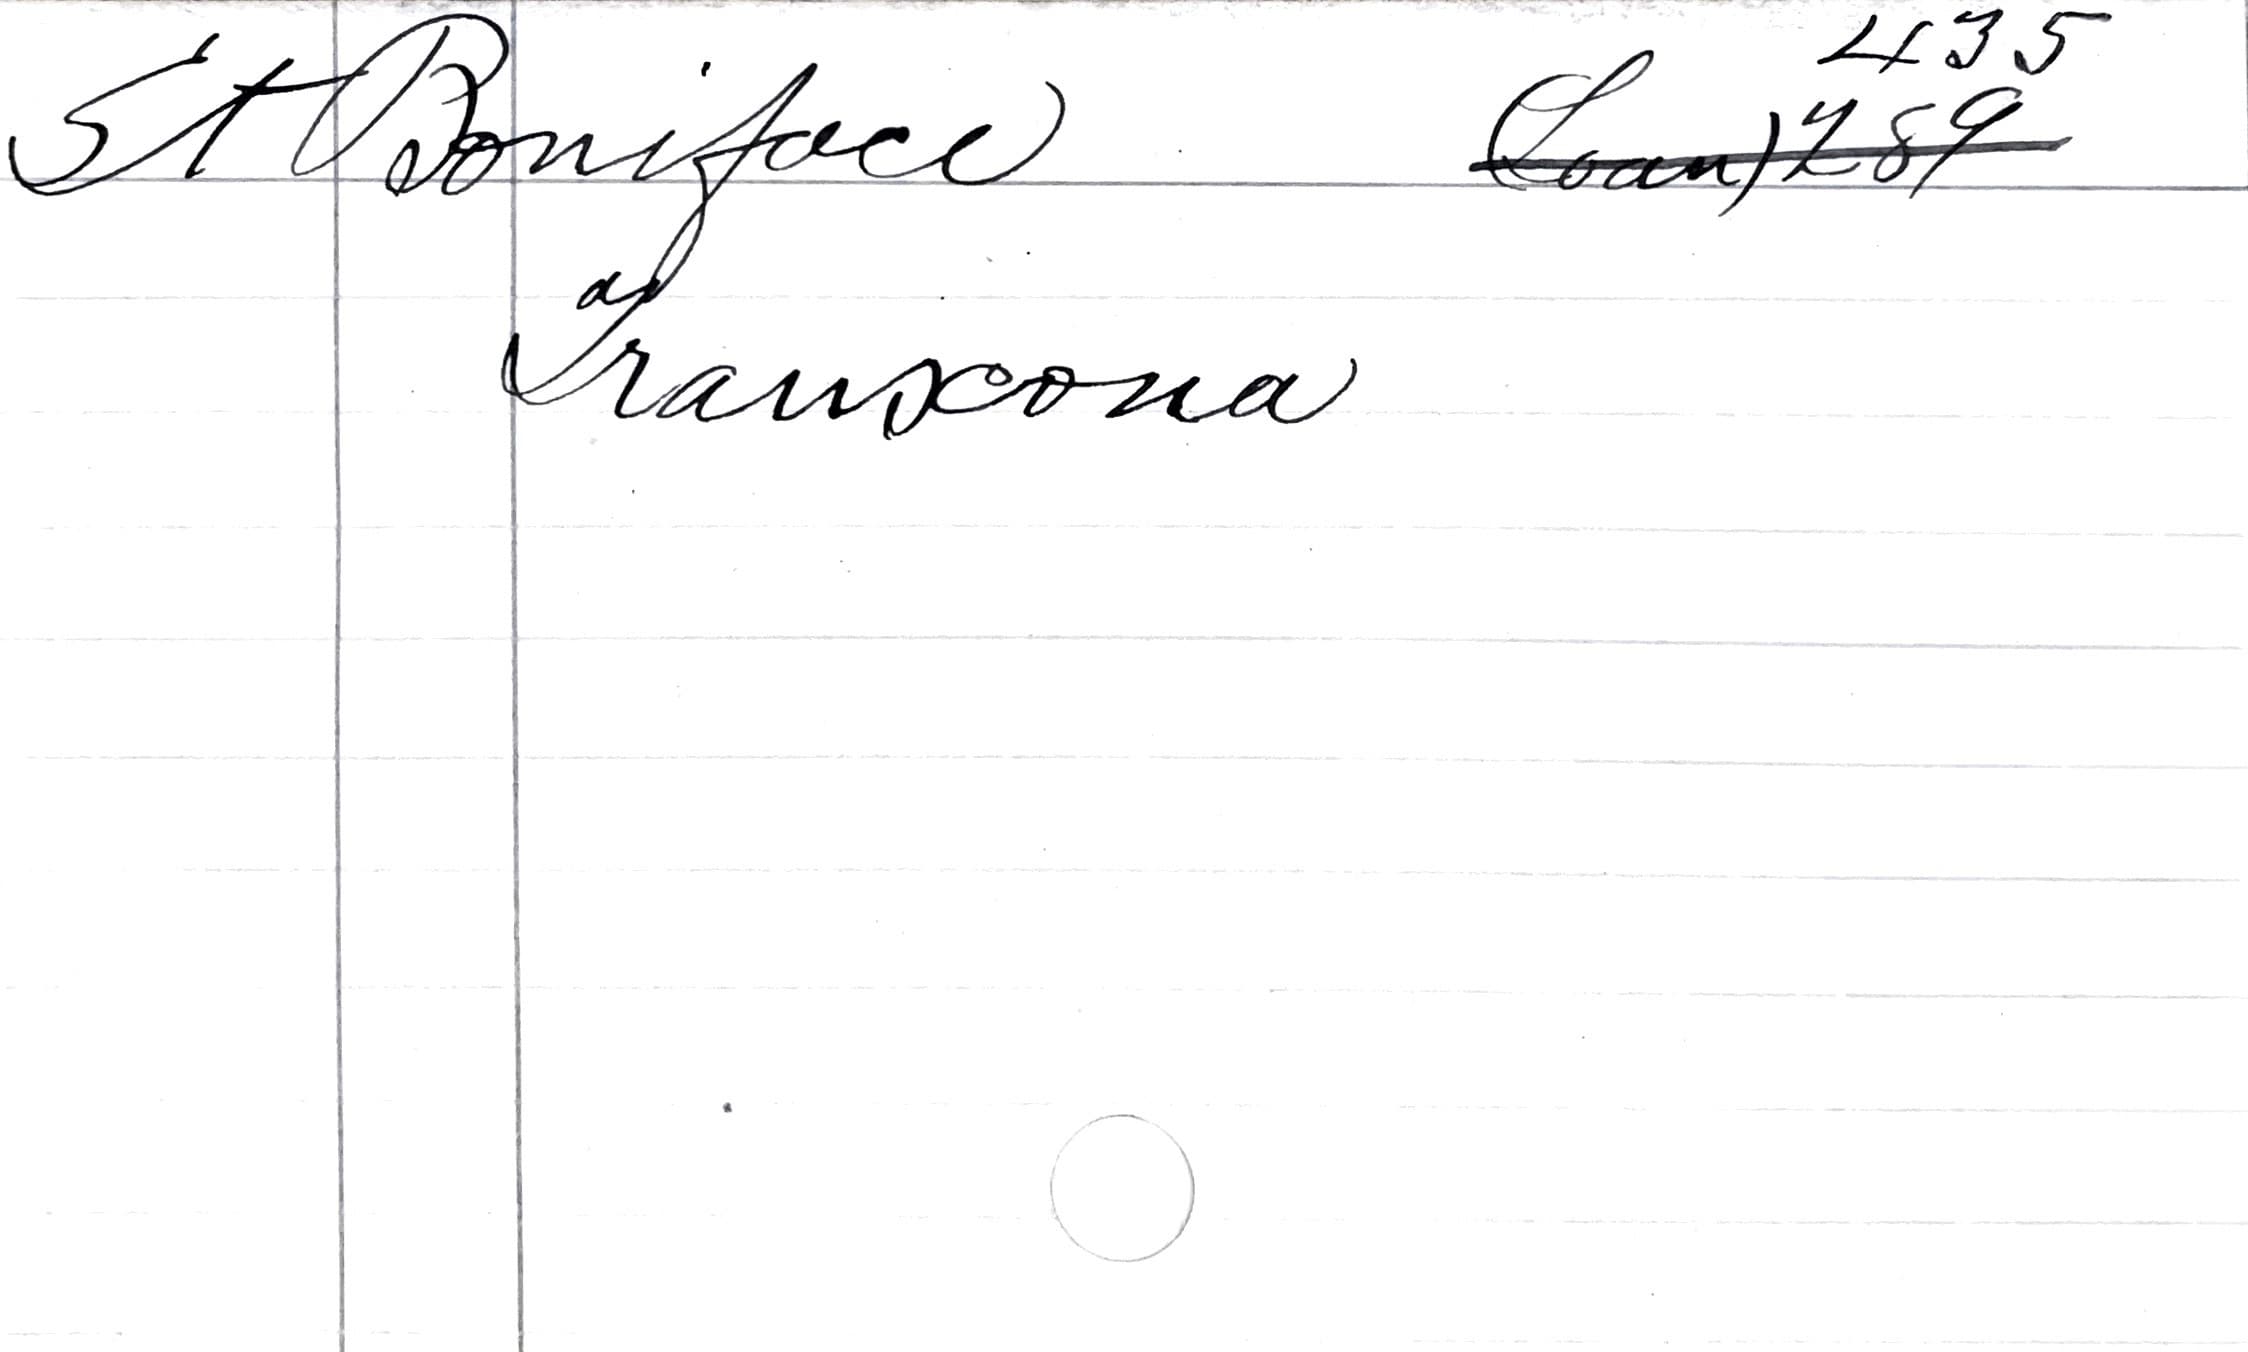 435
St Boniface (Loan) 289
at
Transcona